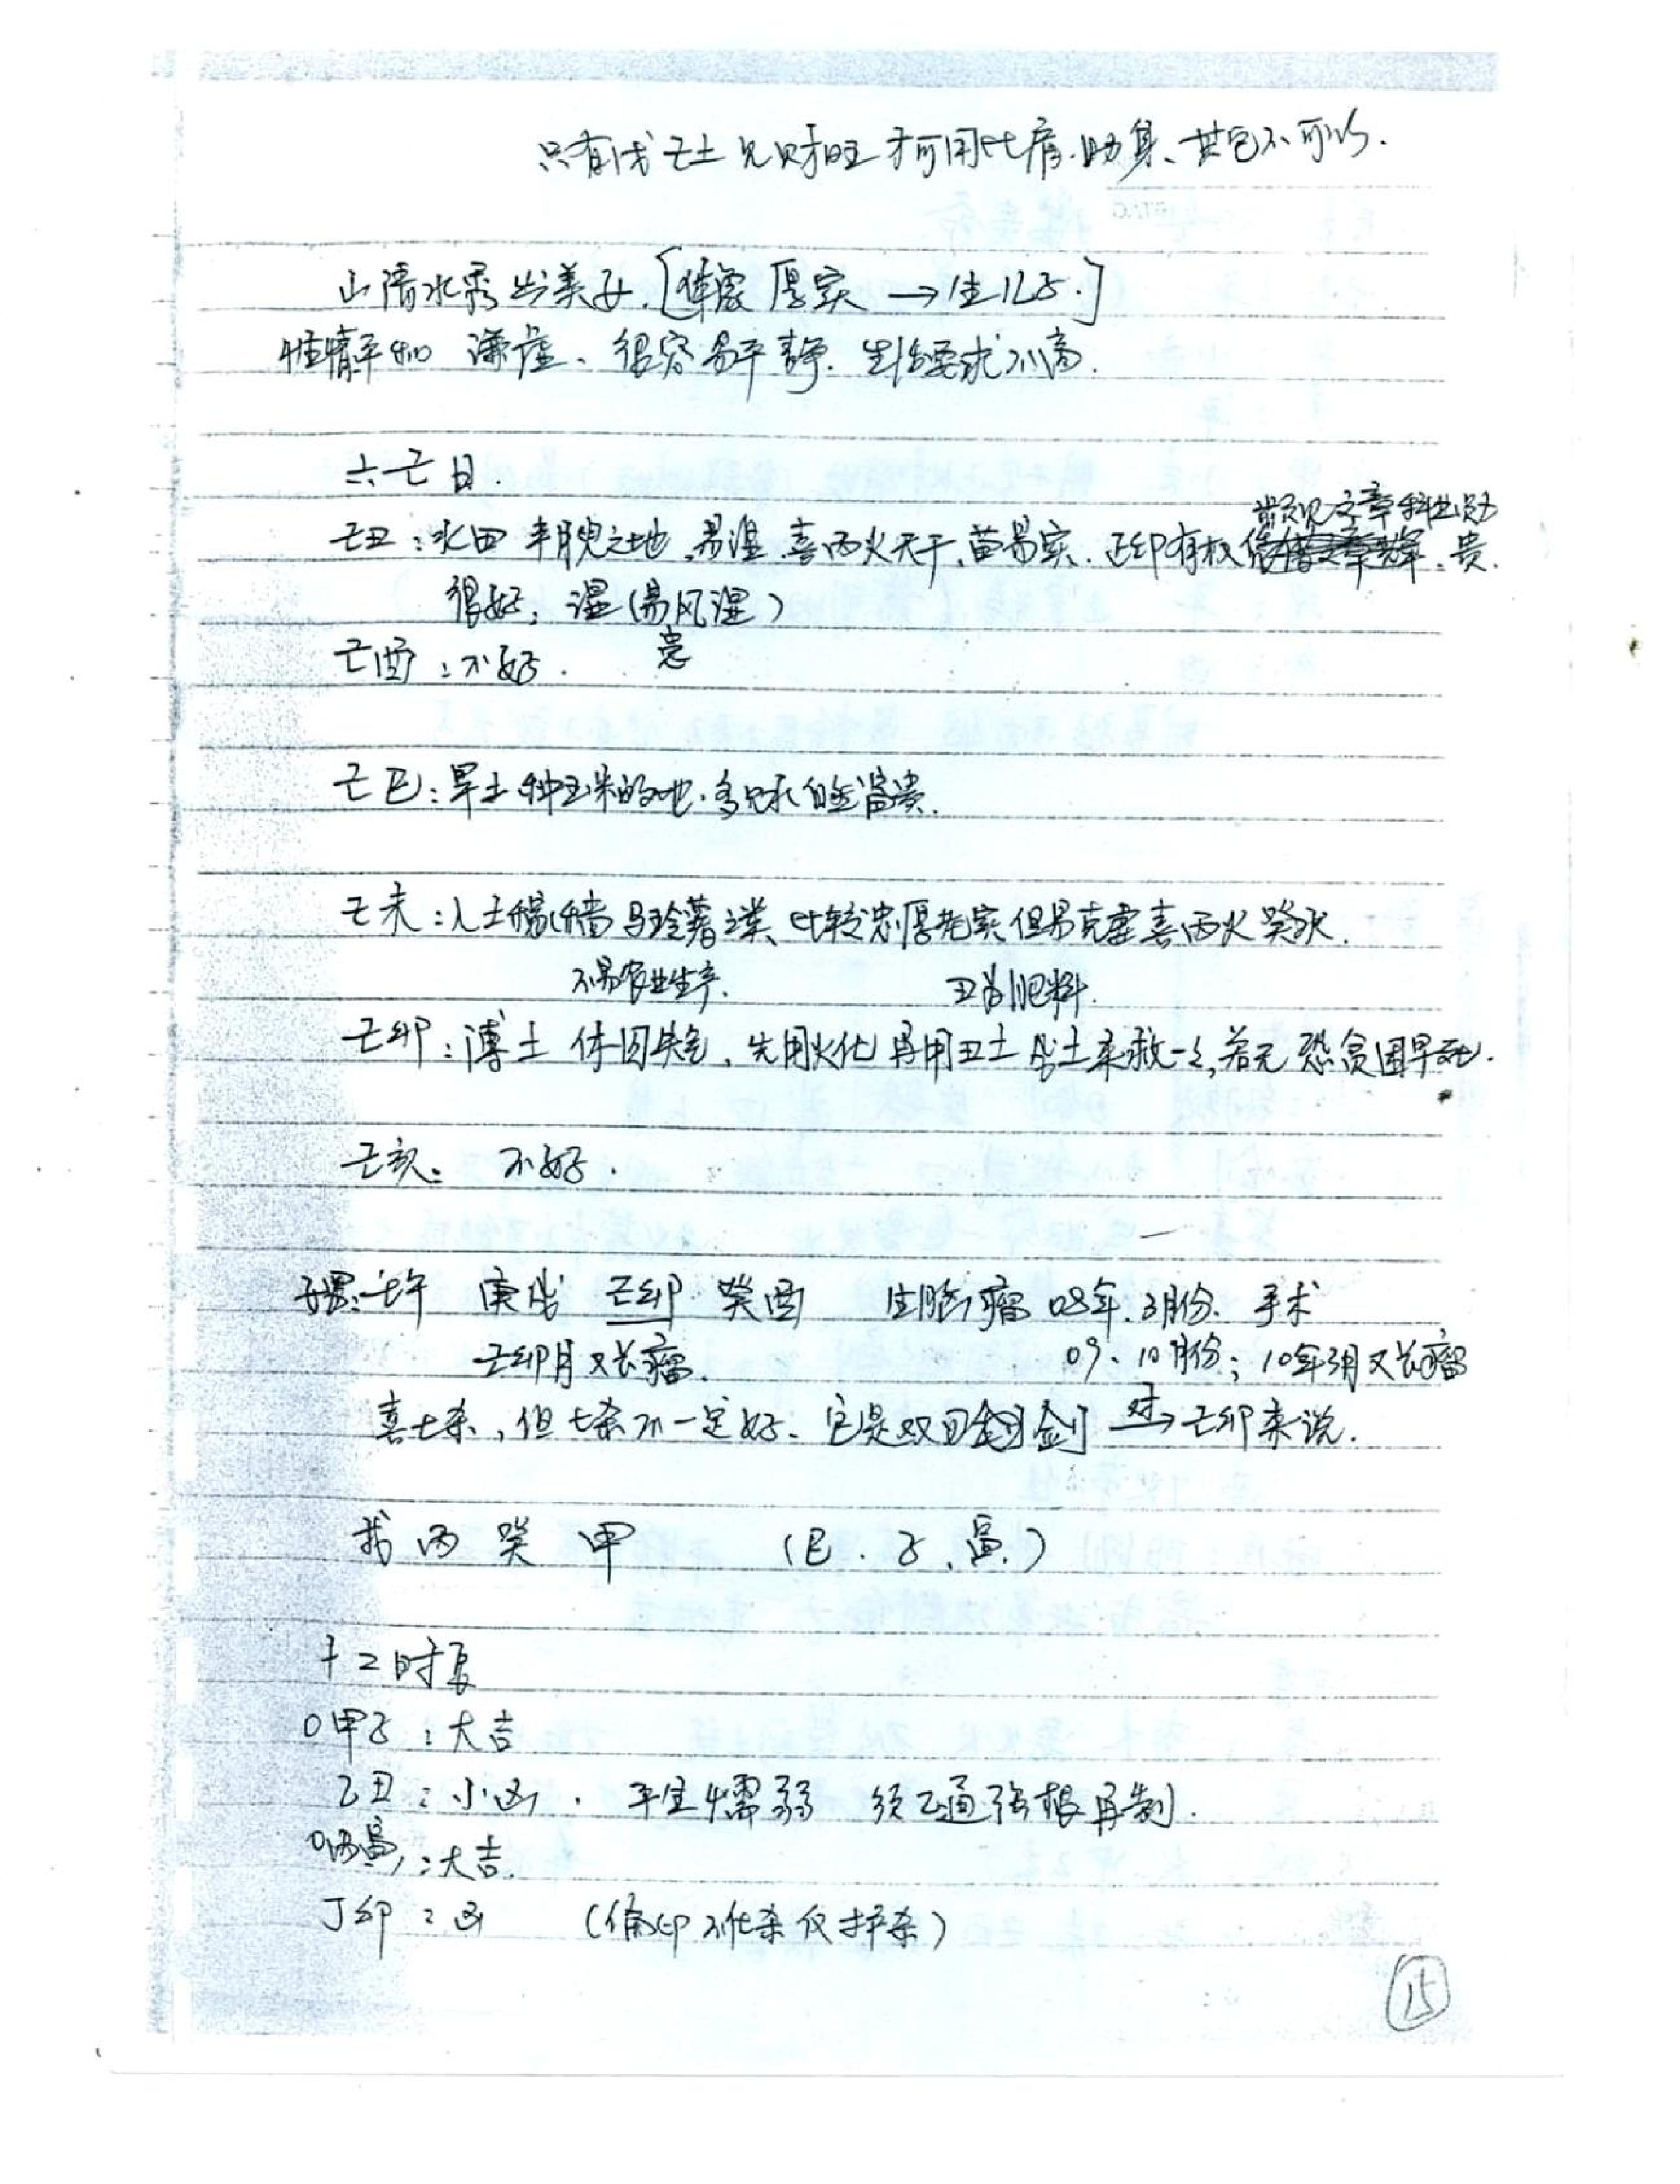 只有戊己土见财旺才可用比肩.助身、其它不可以.
山清水秀出美女.[体象厚实→生儿子.]
性情平和 谦虚、很容易平静.生活要求不高.
六己日.
常见文章科出贵
己丑:水田 丰腴之地,易湿.喜丙火天干,苗易实.正印有权 贵.
很好,湿(易风湿)
己酉:不好. 忌
己巳:旱土种玉米的地.多见水自金富贵.
己未: 土 墙 马玲薯之类、比较忠厚老实但易克妻喜丙火癸水.
不易农业生产. 丑为肥料.
己卯:薄土 体囚失色,先用火化再用丑土 土来救之,若无恐贫困早死.
己亥: 不好.
午 庚戌 己卯 癸酉 生脑瘤 08年.3月份.手术
己卯月又长瘤. 09、10月份;10年3月又长瘤
喜七杀,但七杀不一定好.它是双刃剑 对→己卯来说.
找丙癸甲 (巳.子.寅.)
十二时辰
○甲子:大吉
乙丑:小凶. 平生懦弱 须乙通强根再制.
○丙寅:大吉.
丁卯:凶 (偏印不化杀仅护杀)
15